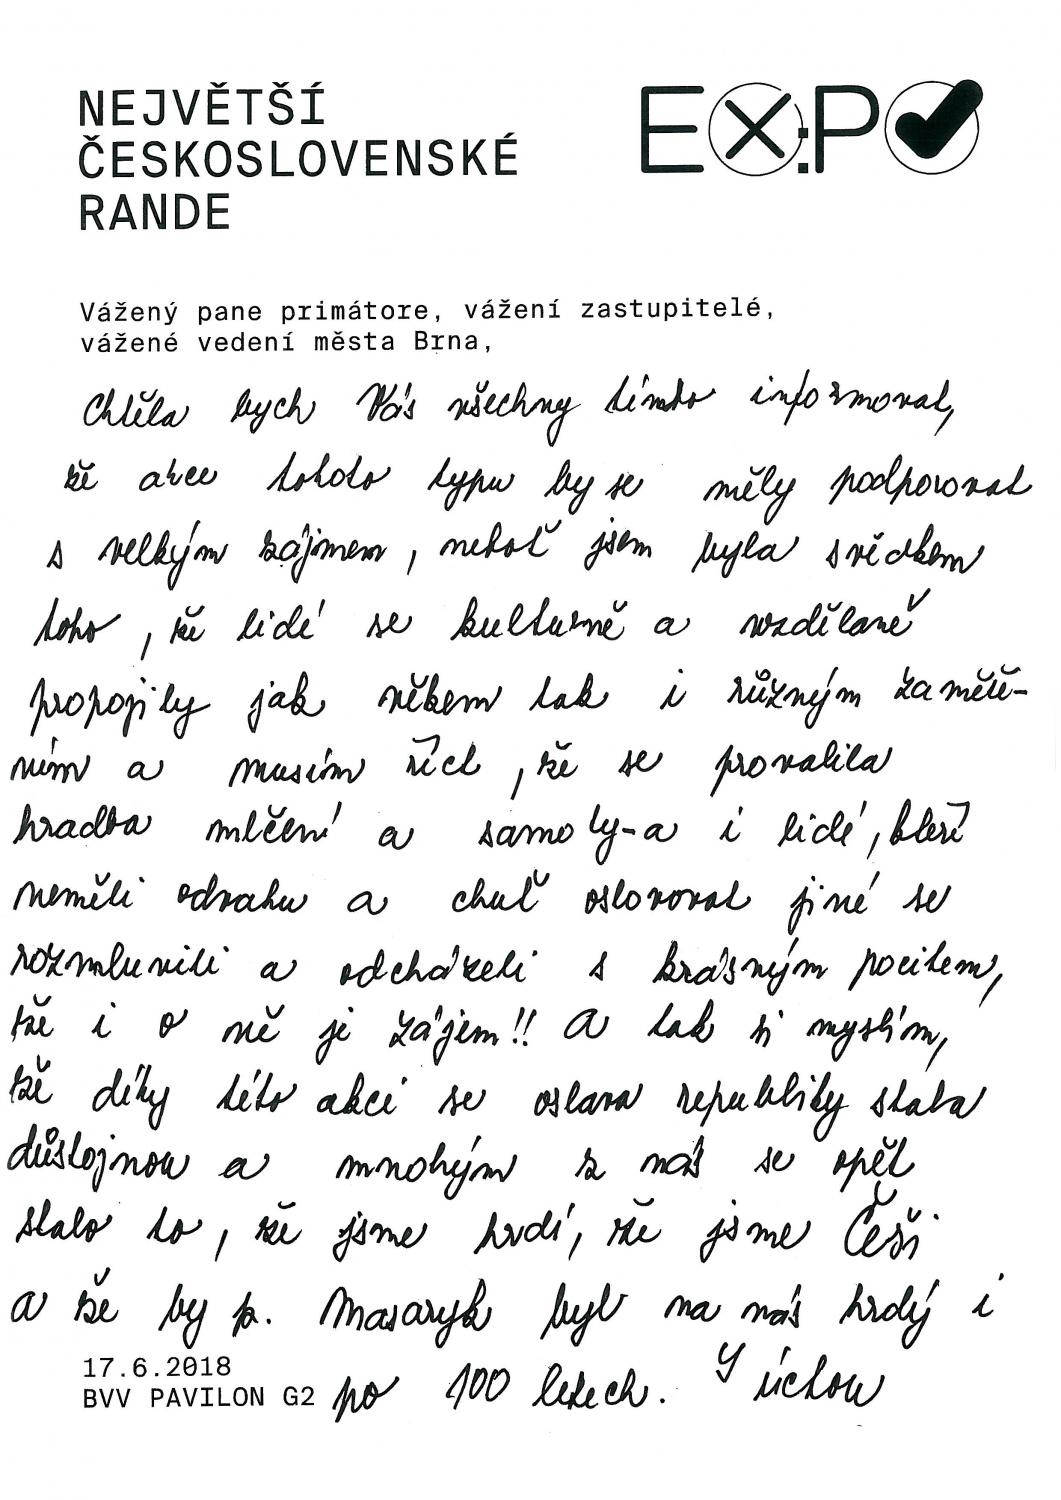 NEJVĚTŠÍ
ČESKOSLOVENSKÉ
RANDE
EX:PO
Vážený pane primátore, vážení zastupitelé,
vážené vedení města Brna,
Chtěla bych Vás všechny tímto informovat,
že akce tohoto typu by se měly podporovat
s velkým zájmem, neboť jsem byla svědkem
toho, že lidé se kulturně a vzdělaně
propojily jak věkem tak i různým zaměře-
ním a musím říct, že se provalila
hradba mlčení a samoty-a i lidé, kteří
neměli odvahu a chuť oslovovat jiné se
rozmluvili a odcházeli s krásným pocitem,
že i o ně je zájem!! A tak si myslím,
že díky této akci se oslava republiky stala
důstojnou a mnohým z nás se opět
stalo to, že jsme hrdí, že jsme Češi
a že by p. Masaryk byl na nás hrdý i
po 100 letech. S úctou
17.6.2018
BVV PAVILON G2